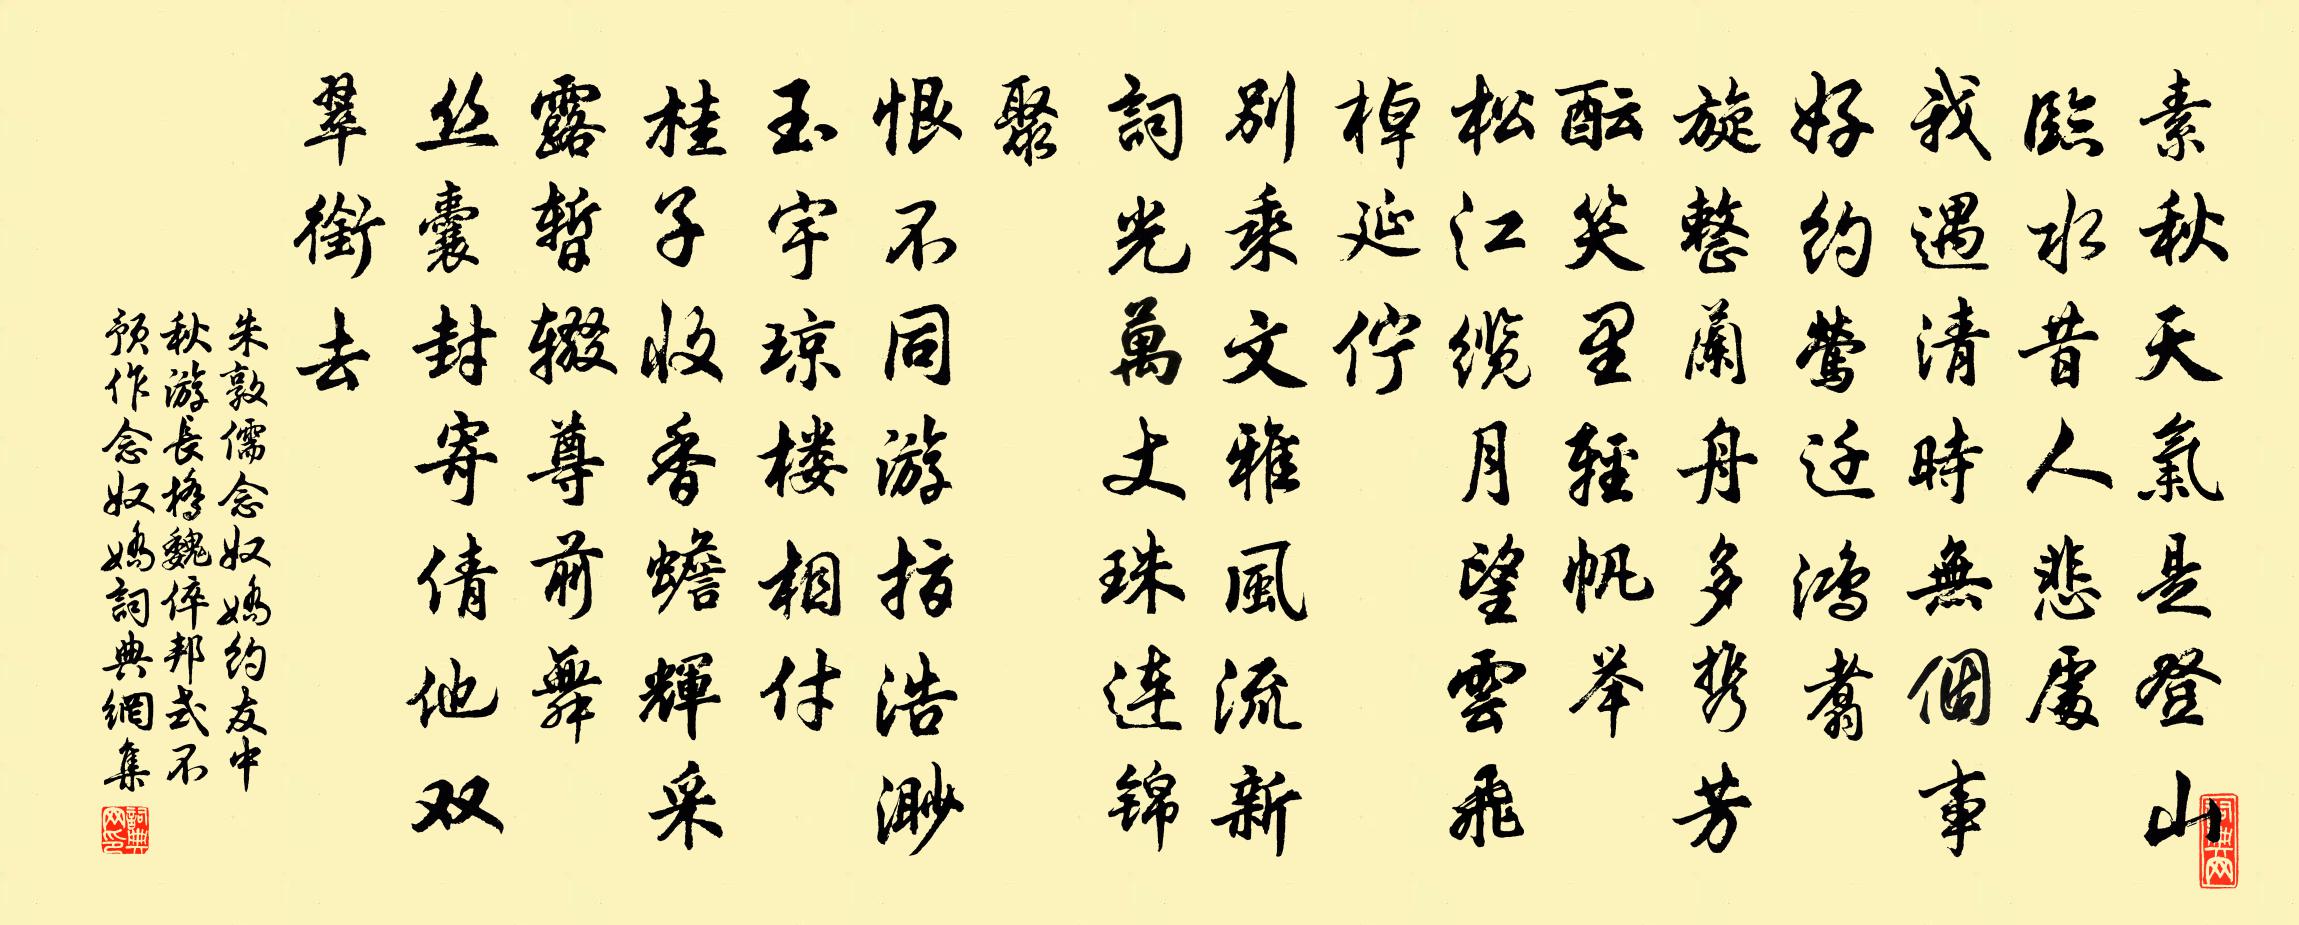 素秋天氣是登山
臨水昔人悲處
我遇清時無個事
好约鶯迁鴻翥
旋整蘭舟多携芳
酝笑里輕帆举
松江缆月望雲飛
棹延佇
别乘文雅風流新
詞光萬丈珠连锦
聚
恨不同游指浩渺
玉宇琼楼相付
桂子收香蟾輝采
露暂辍尊前舞
丝囊封寄倩他双
翠銜去
朱敦儒念奴嬌约友中
秋游長橋魏倅邦式不
預作念奴嬌詞典網集
詞典网印
词典网